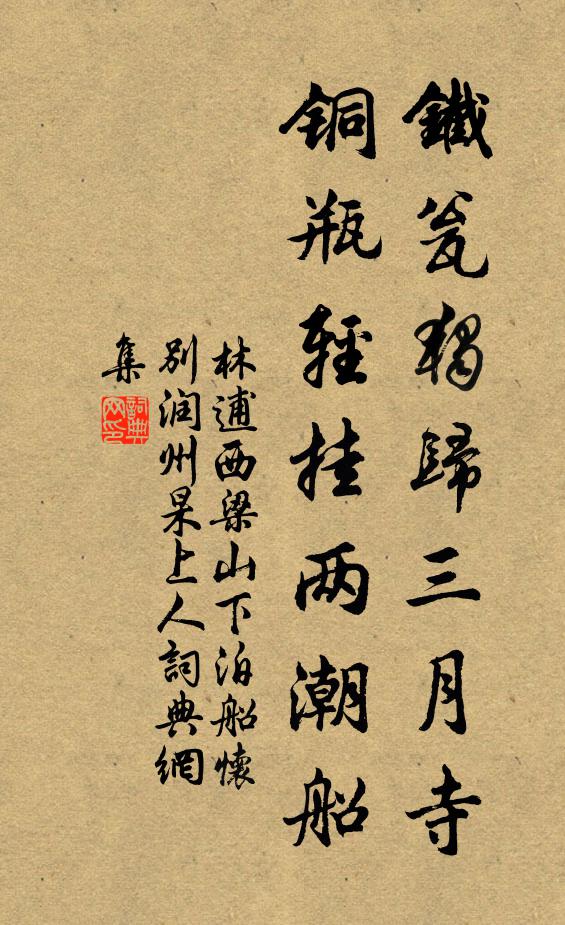 鐵瓮獨歸三月寺
銅瓶輕挂两潮船
林逋西梁山下泊船懷
别润州杲上人詞典網
集
詞典
网印